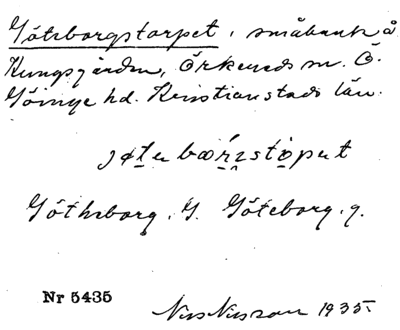 Göteborgstorpet, småbruk å
Kungsgården, Örkeneds sn. Ö.
Göinge hd. Kristianstads län.
Götheborg. G. Göteborg. g.
Nr 5435
Nils Nilsson 1935.